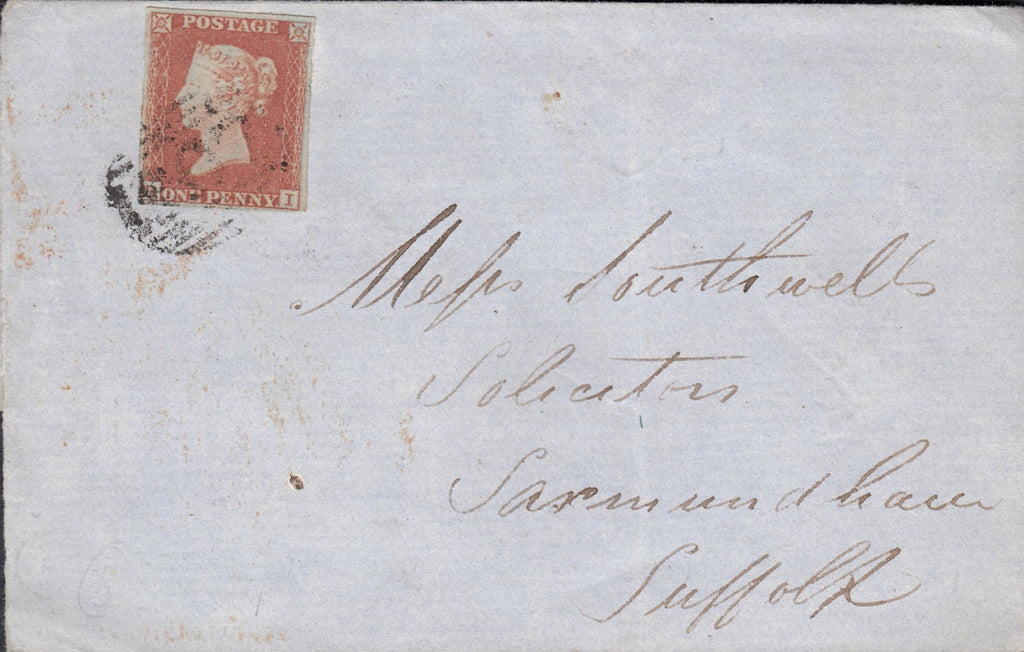 POSTAGE
ONE PENNY I
Mess Southwells
Solicitors
Saxmundham
Suffolk